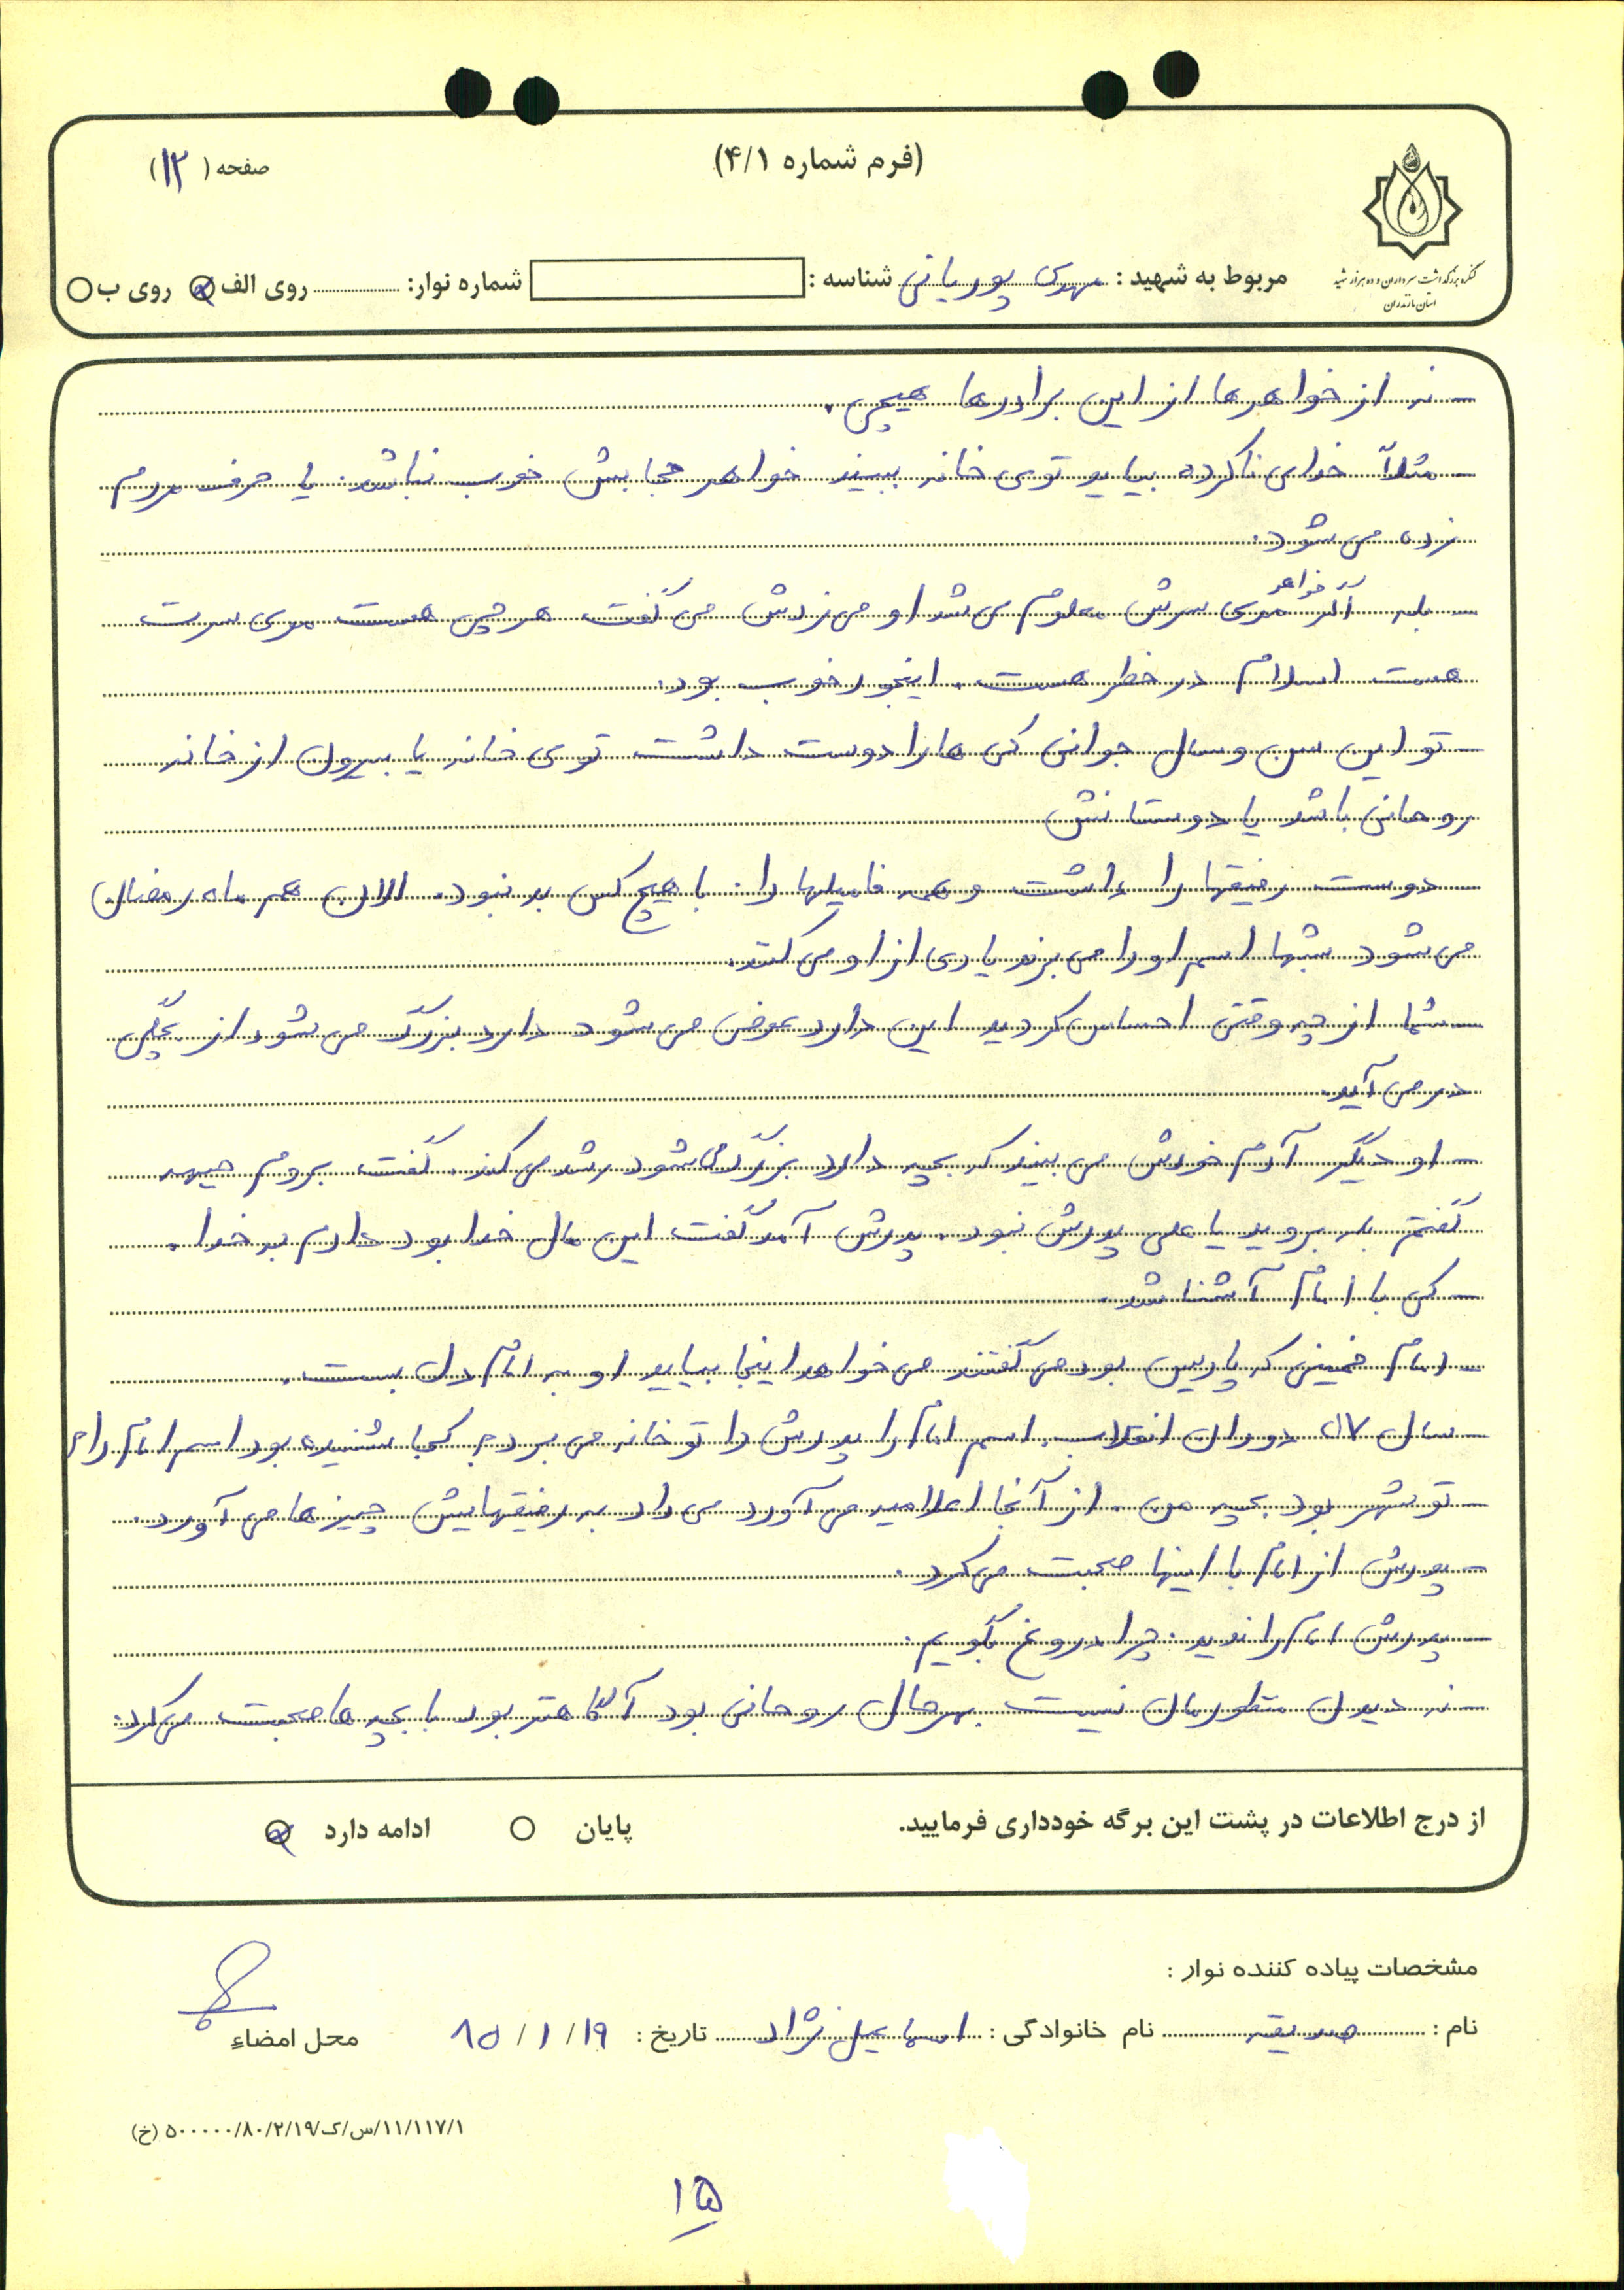 (فرم شماره ۴/۱)
صفحه (۱۳)
کنگره بزرگداشت سرداران و ده هزار شهید
استان مازندران
مربوط به شهید : مهدی پوریانی شناسه : شماره نوار: روی الف روی ب
– نه از خواهرها از این برادرها هیچی.
– مثلاً خدای ناکرده بیاید توی خانه ببیند خواهر حجابش خوب نباشد. یا حرف مردم
زده می شود.
– بله اگر خواهر موی سرش معلوم می شد او می زدش می گفت هر چی هست موی سرت
هست اسلام در خطر هست. اینجور خوب بود.
– تو این سن و سال جوانی کی ها را دوست داشت توی خانه یا بیرون از خانه
روحانی باشد یا دوستانش
– دوست رفیقها را داشت و همه فامیلها را. با هیچ کس بد نبود. الان هم ماه رمضان
می شود شبها اسم او را می برند یادی از او می کنند.
– شما از چه وقتی احساس کردید این دارد عوض می شود دارد بزرگ می شود از بچگی
در می آید.
– او دیگر آدم خودش می بیند که بچه دارد بزرگ می شود رشد می کند. گفت بروم جبهه
گفتم بله بروید یا علی پدرش نبود. پدرش آمد گفت این مال خدا بود دادم به خدا.
– کی با امام آشنا شد.
– امام خمینی که پاریس بود می گفتند می خواهد اینجا بیاید او به امام دل بست.
– سال ۵۷ دوران انقلاب. اسم امام را پدرش را تو خانه می برد کجا شنیده بود اسم امام را
– تو شهر بود بچه من. از آنجا اعلامیه می آورد می داد به رفیقهایش چیزها می آورد.
– پدرش از امام با اینها صحبت می کرد.
– پدرش امام را ندید. چرا دروغ بگویم.
– نه دیدن منظورمان نیست بهرحال روحانی بود آگاهتر بود با بچه ها صحبت می کرد.
از درج اطلاعات در پشت این برگه خودداری فرمایید. پایان ادامه دارد
مشخصات پیاده کننده نوار :
نام : صدیقه نام خانوادگی : اسماعیل نژاد تاریخ : ۸۵/۱/۱۹ محل امضاء
۱۱/۱۱۷/۱/س/ک/۵۰۰۰۰۰/۸۰/۲/۱۹ (خ)
۱۵